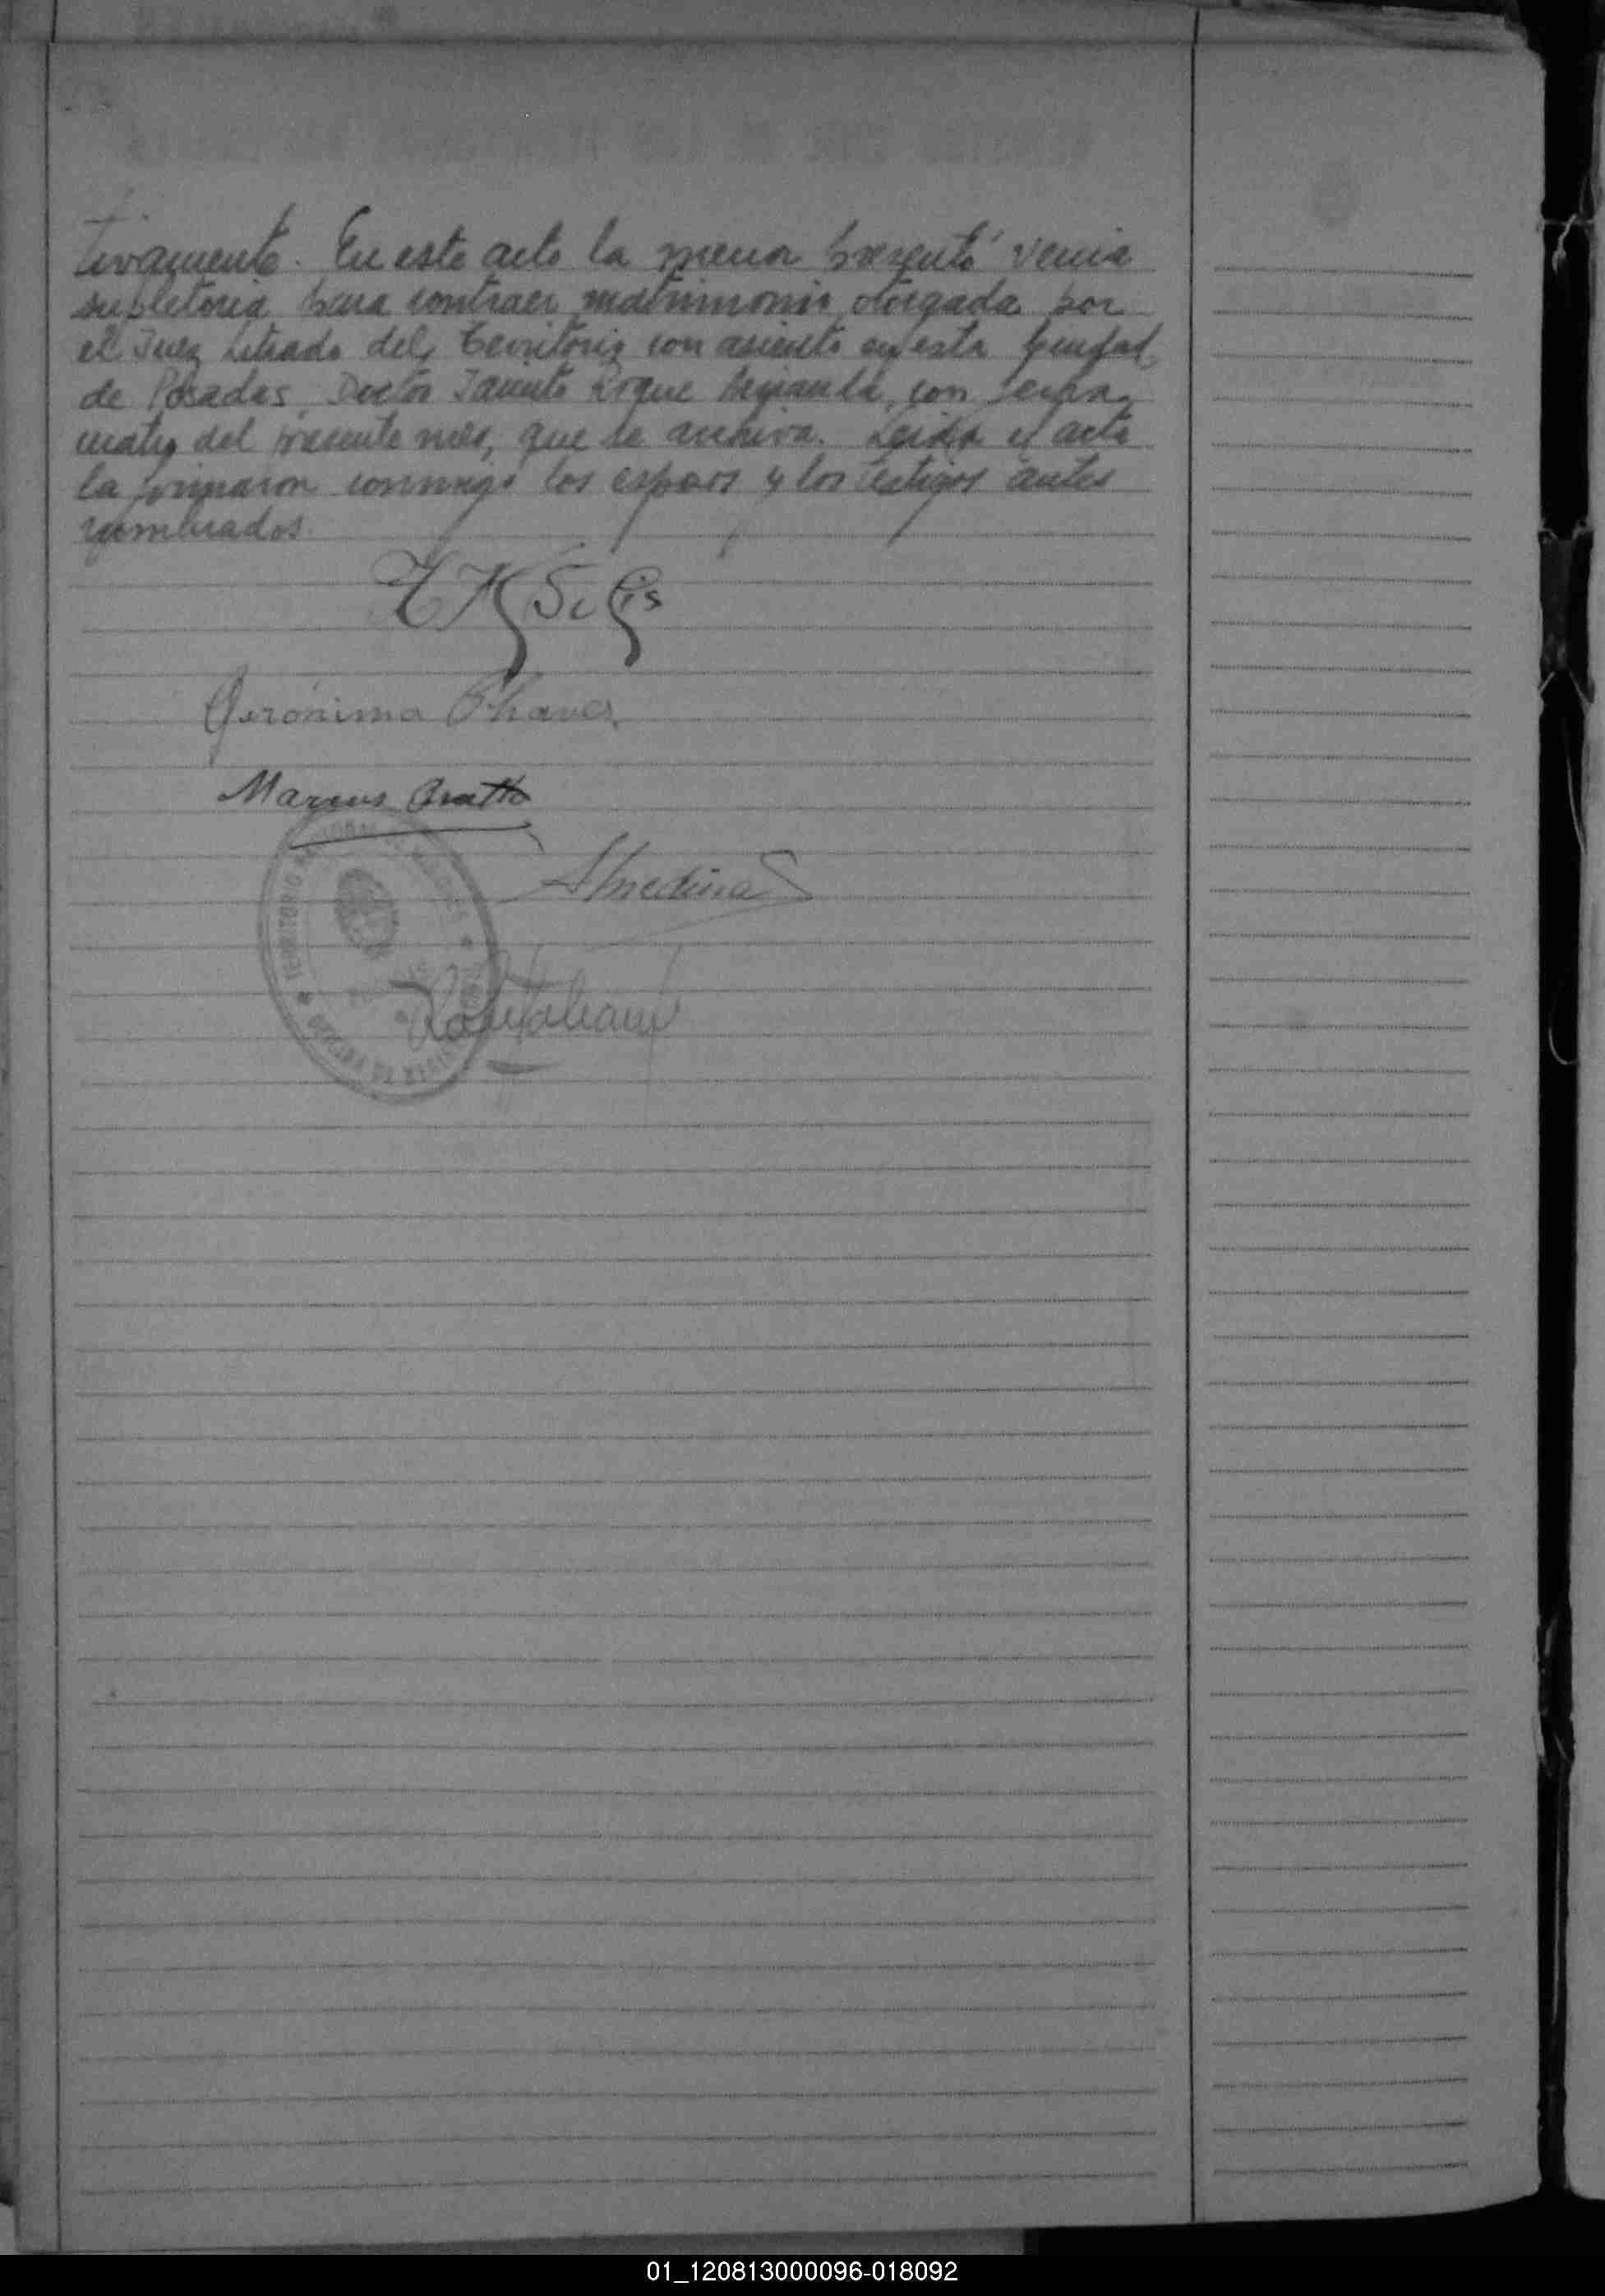 tivamente. En este acto la menor presentó venia
supletoria para contraer matrimonio, otorgada por
el Juez Letrado del Territorio con asiento en esta
de Posadas, Doctor Jacinto Roque con fecha
cuatro del presente mes, que se archiva. Leida el acta
la firmaron conmigo los esposos y los testigos antes
nombrados.
Gerónima Chavez
Marcos
Medina
TERRITORIO
01_120813000096-018092